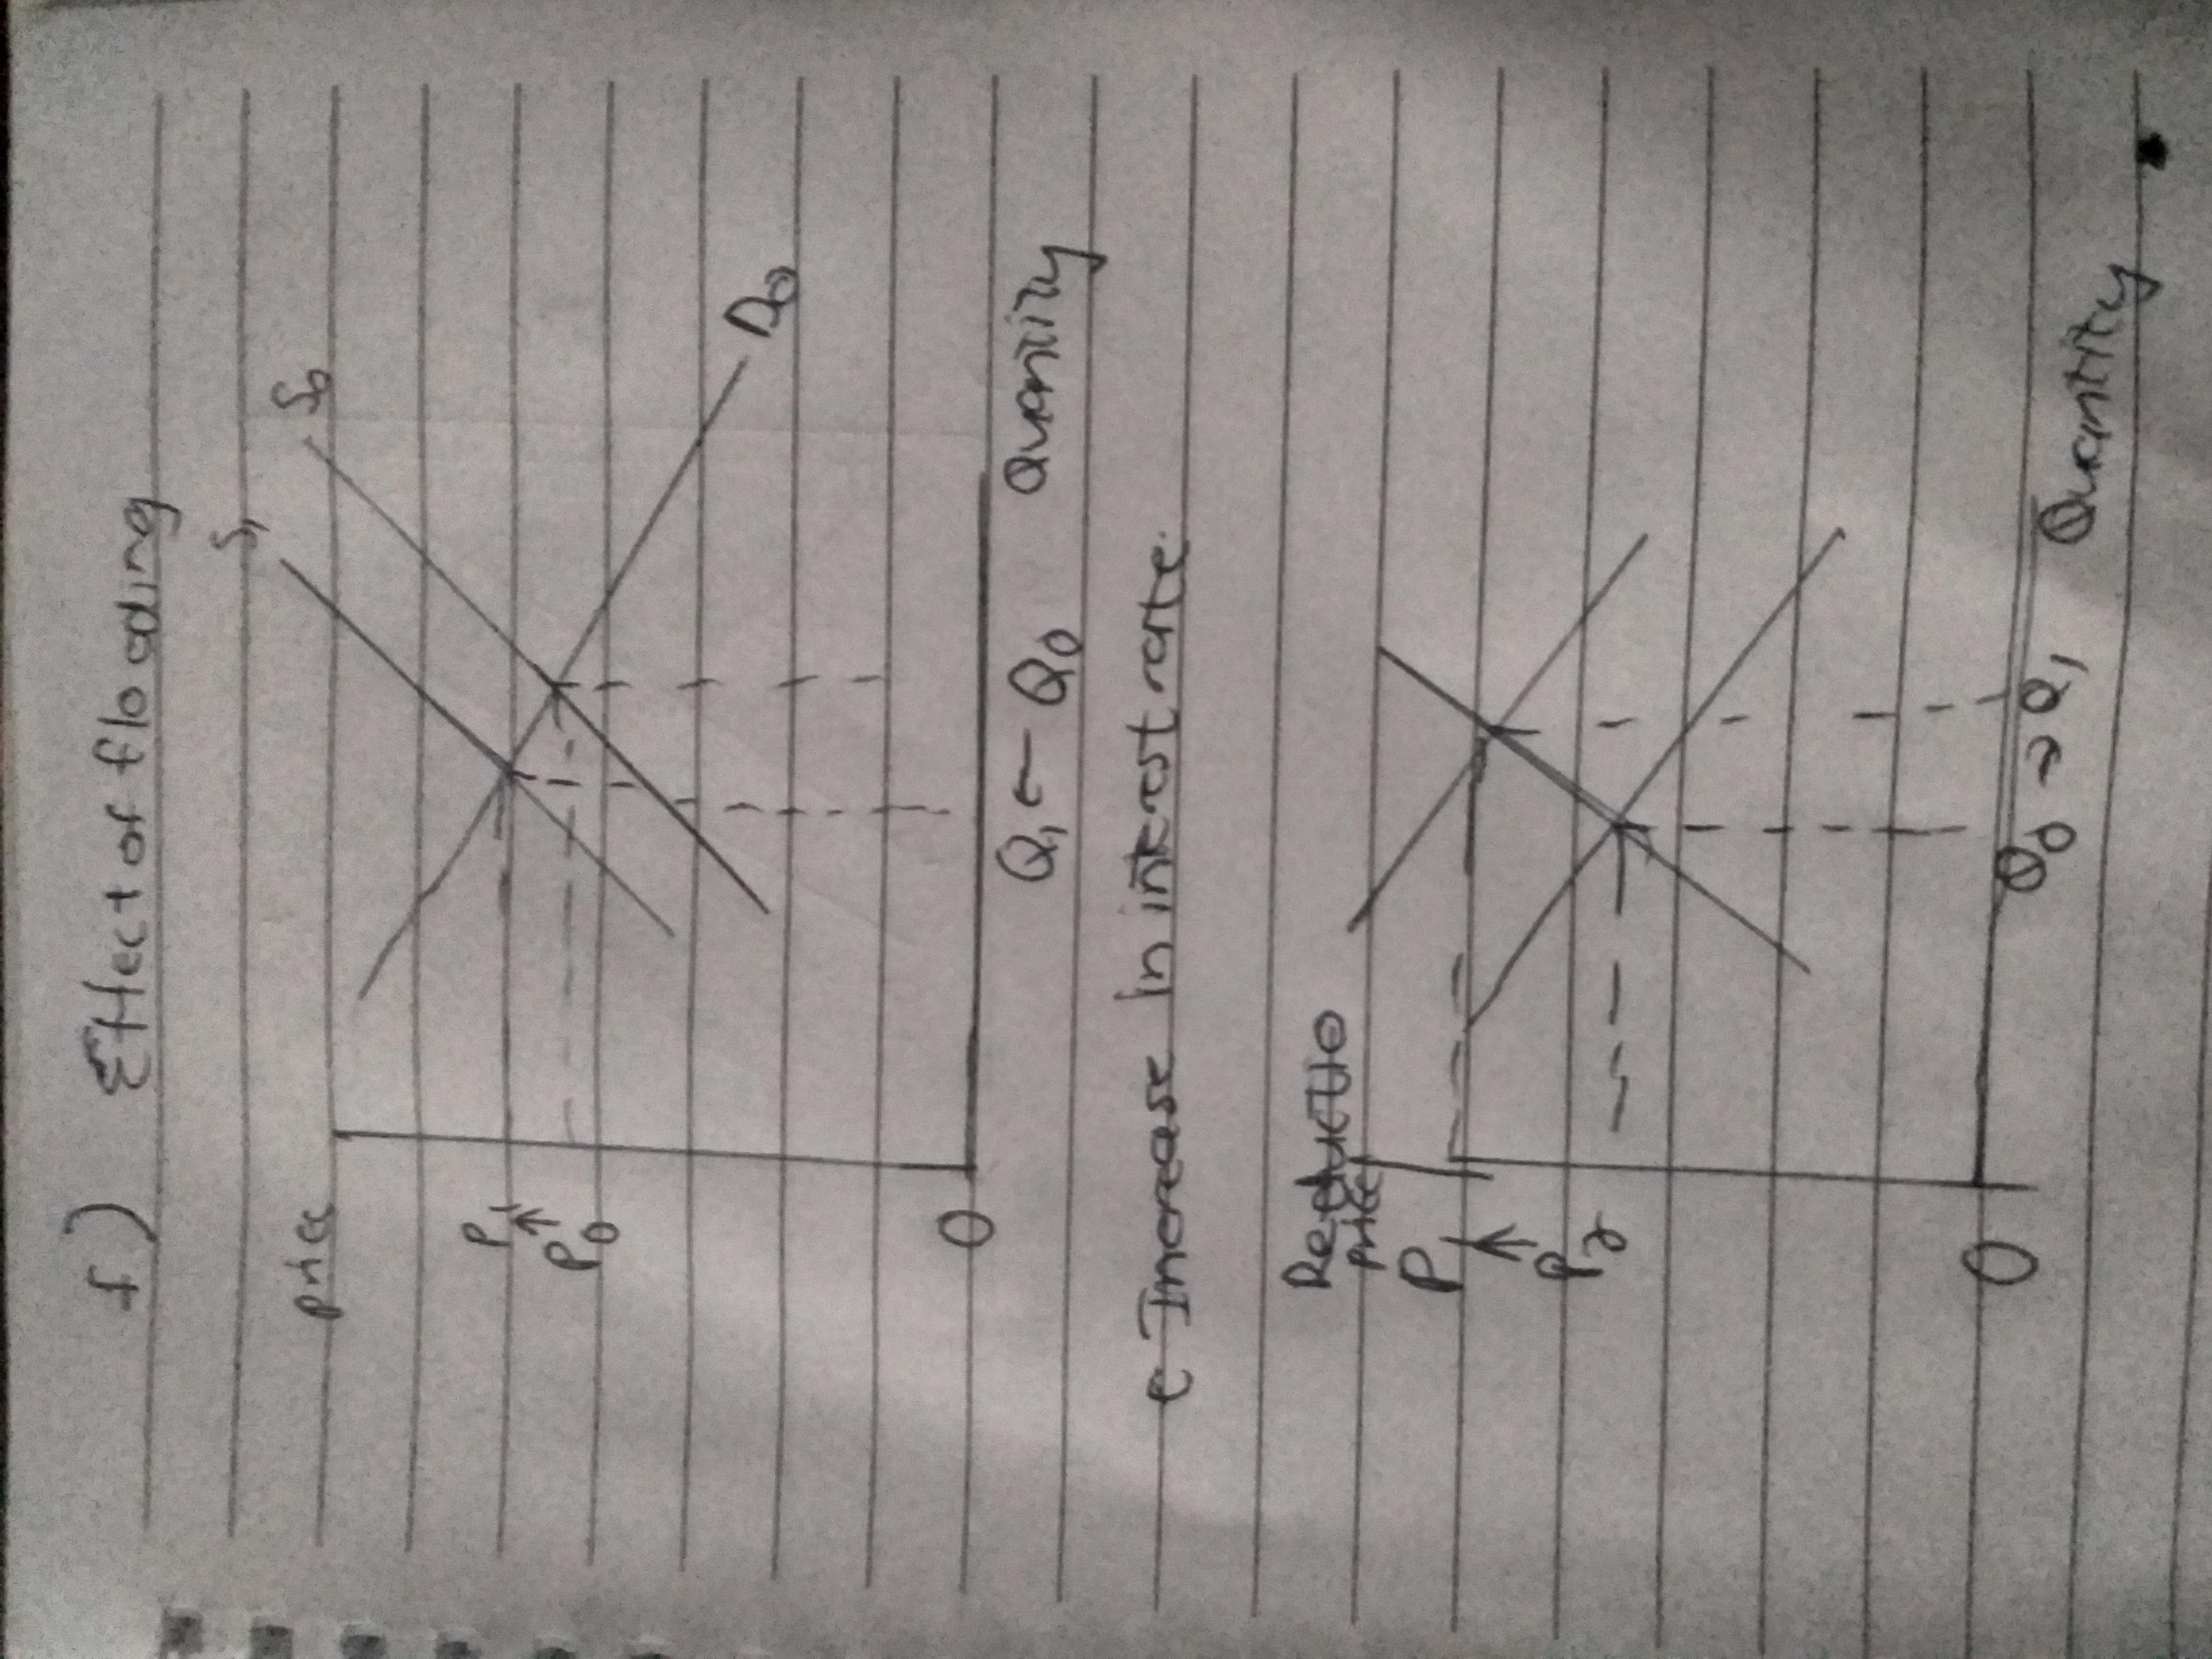 f) Effect of flooding
S₁
price S₀
P₁
↑
P₀
D₀
0 Q₁ ← Q₀ Quantity
e Increase in interest rate.
Reductio
price
P₁
↑
P₂
0 Q₀ → Q₁ Quantity